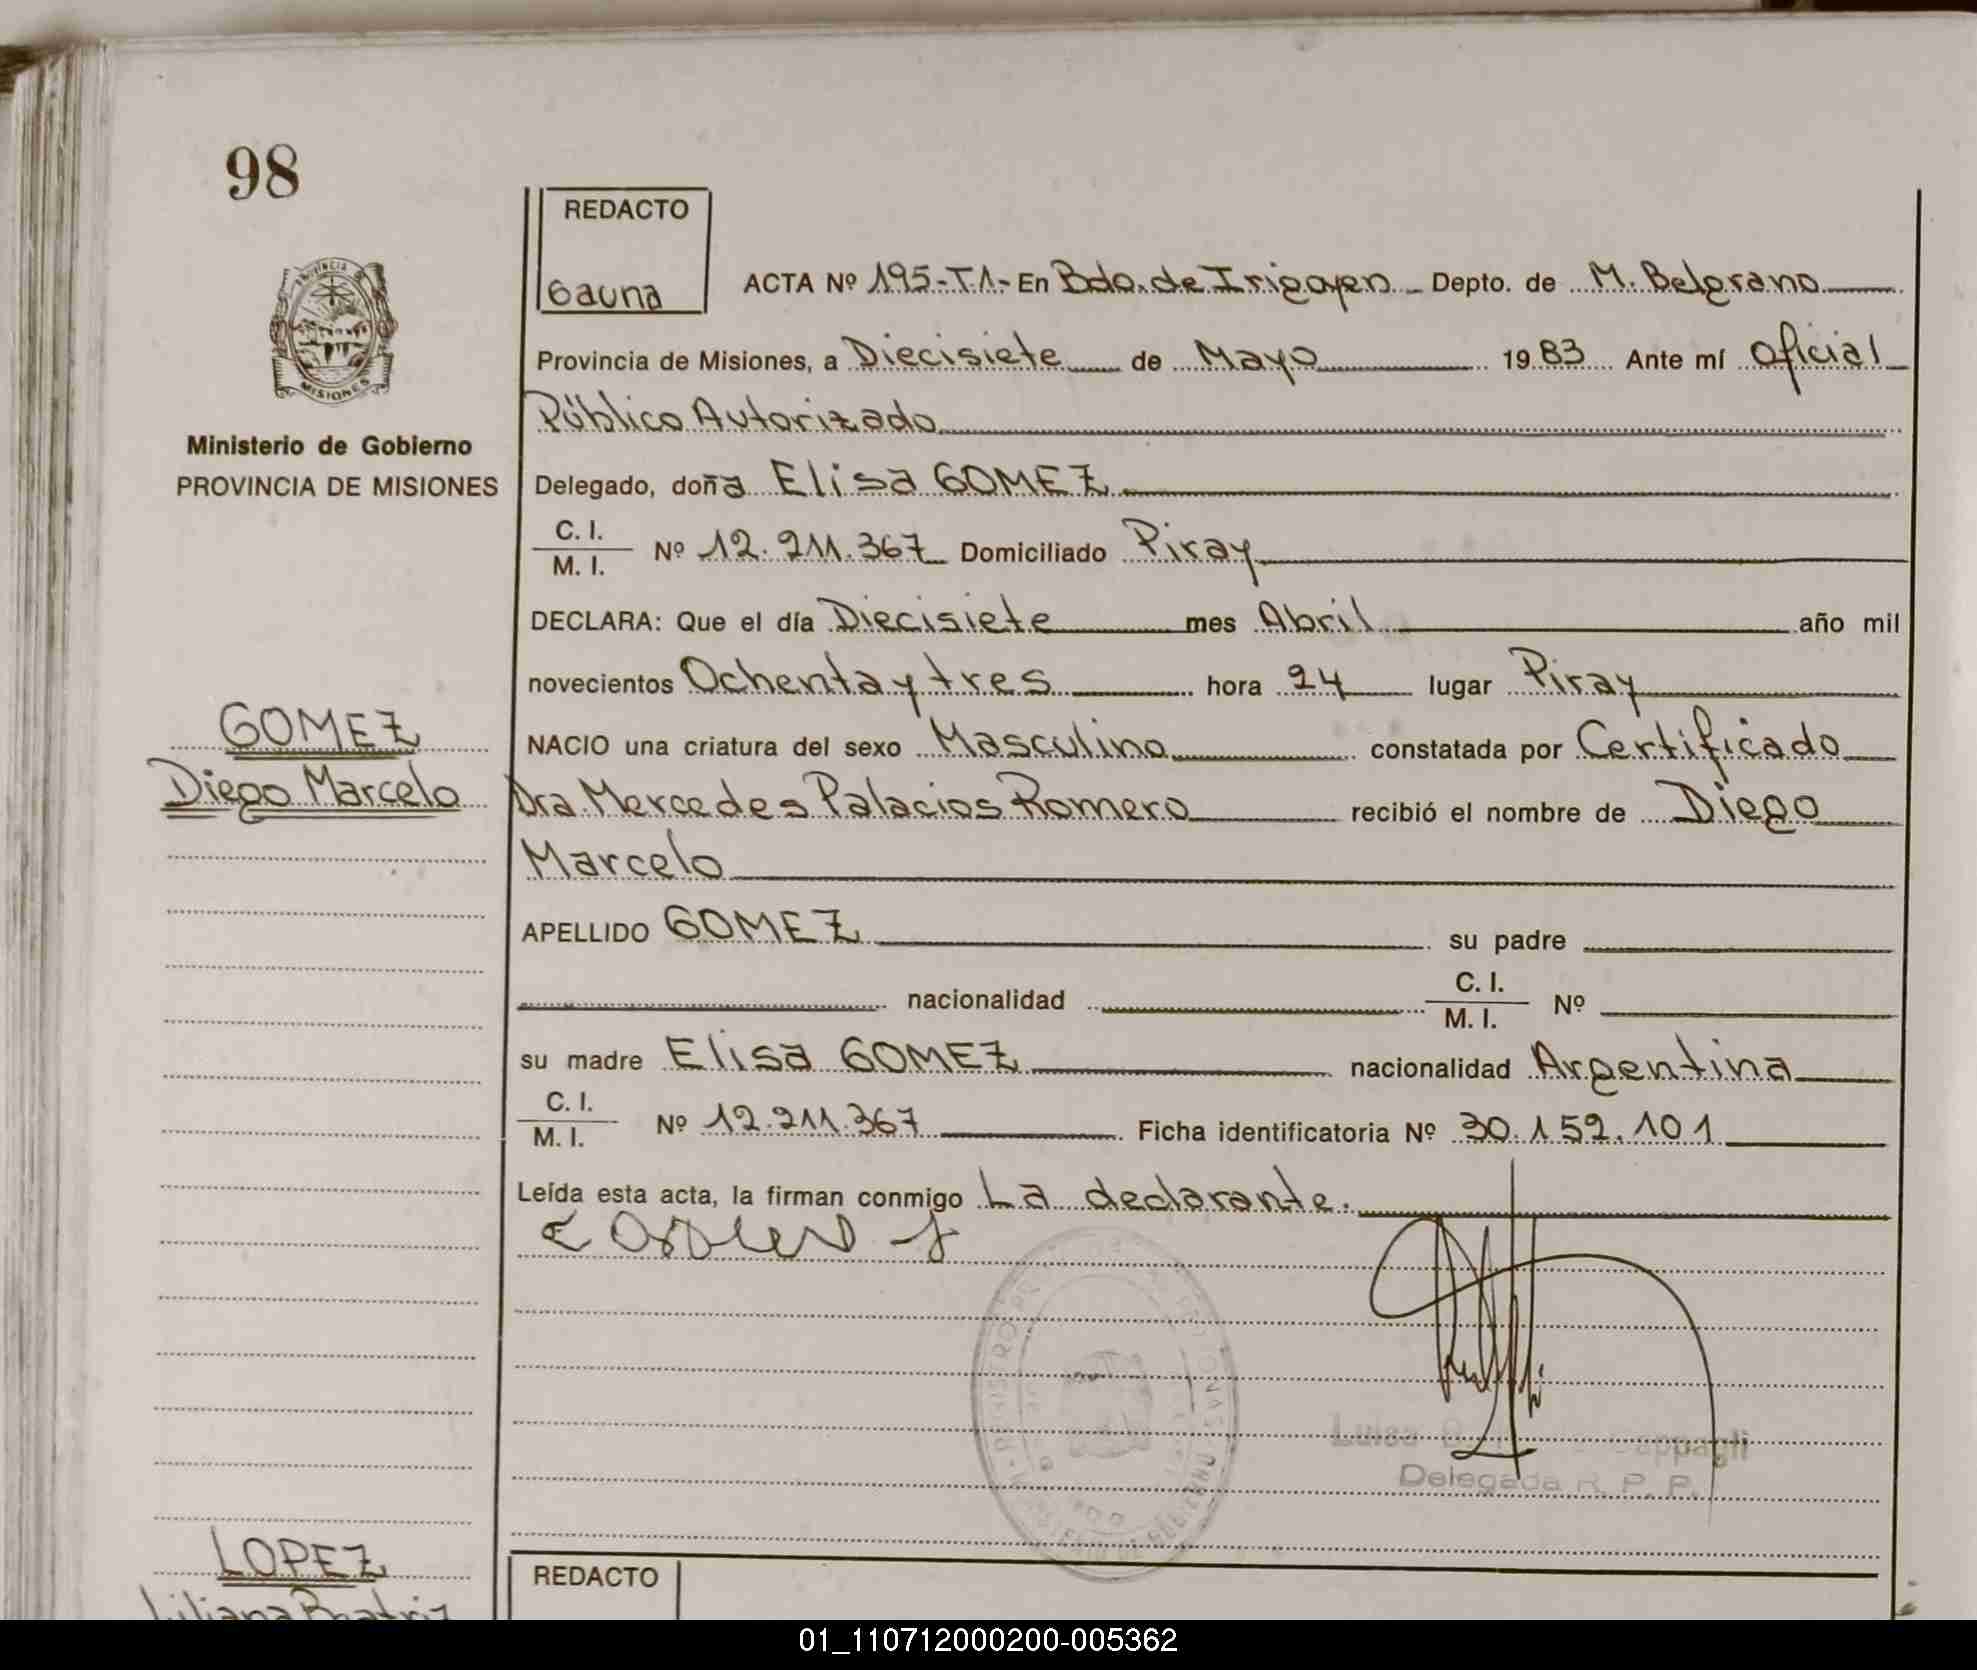 98
REDACTO
Gauna
ACTA Nº 195-T1- En Bdo. de Irigoyen Depto. de M. Belgrano
Provincia de Misiones, a Diecisiete de Mayo 1983 Ante mí Oficial
Público Autorizado
PROVINCIA DE MISIONES
Ministerio de Gobierno
PROVINCIA DE MISIONES
Delegado, doña Elisa GOMEZ
C. I.
M. I. Nº 12.211.367 Domiciliado Piray
DECLARA: Que el día Diecisiete mes Abril año mil
novecientos Ochenta y tres hora 24 lugar Piray
GOMEZ
Diego Marcelo
NACIO una criatura del sexo Masculino constatada por Certificado
Dra. Mercedes Palacios Romero recibió el nombre de Diego
Marcelo
APELLIDO GOMEZ su padre
nacionalidad C. I.
M. I. Nº
su madre Elisa GOMEZ nacionalidad Argentina
C. I.
M. I. Nº 12.211.367 Ficha identificatoria Nº 30.152.101
Leída esta acta, la firman conmigo La declarante.
Luisa
Delegada R. P. P.
LOPEZ
Liliana Beatriz
REDACTO
01_110712000200-005362